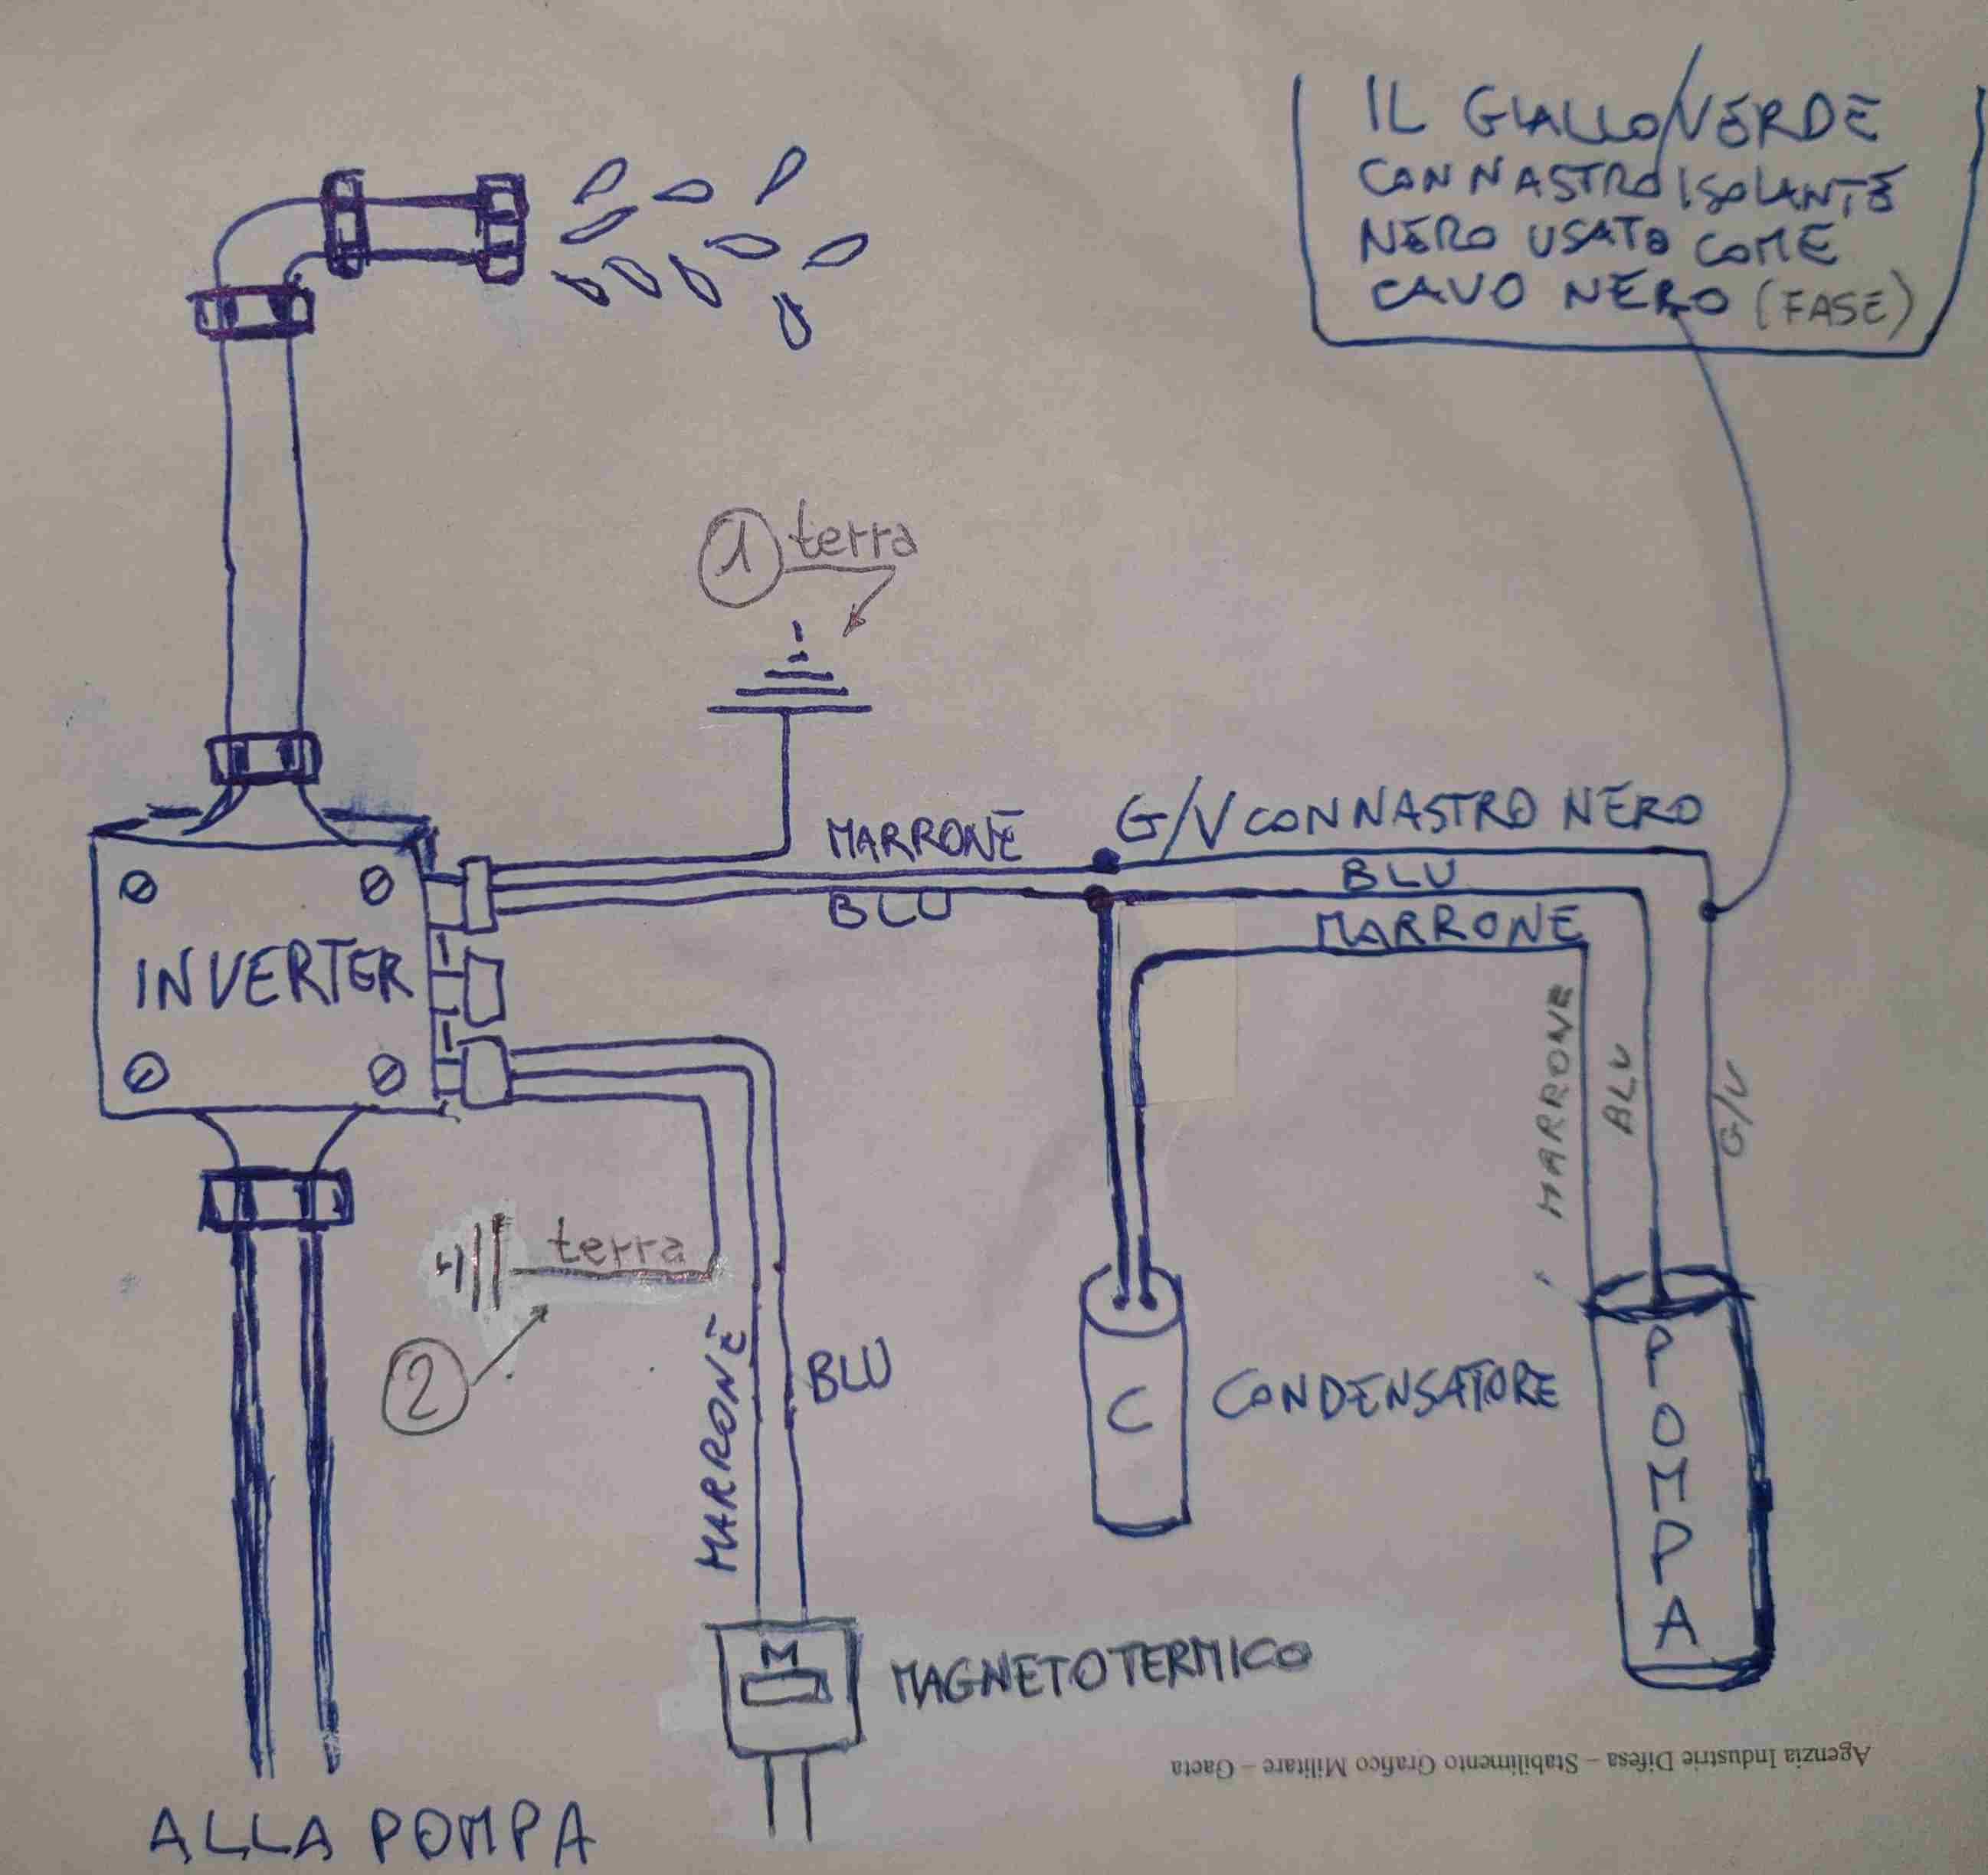 IL GIALLO/VERDE
CON NASTRO ISOLANTE
NERO USATO COME
CAVO NERO (FASE)
1 terra
G/V CON NASTRO NERO
MARRONE
BLU
BLU
MARRONE
INVERTER
MARRONE
BLU
G/V
terra
2
MARRONE
BLU
C
CONDENSATORE
POMPA
M
MAGNETOTERMICO
Agenzia Industrie Difesa – Stabilimento Grafico Militare – Gaeta
ALLA POMPA